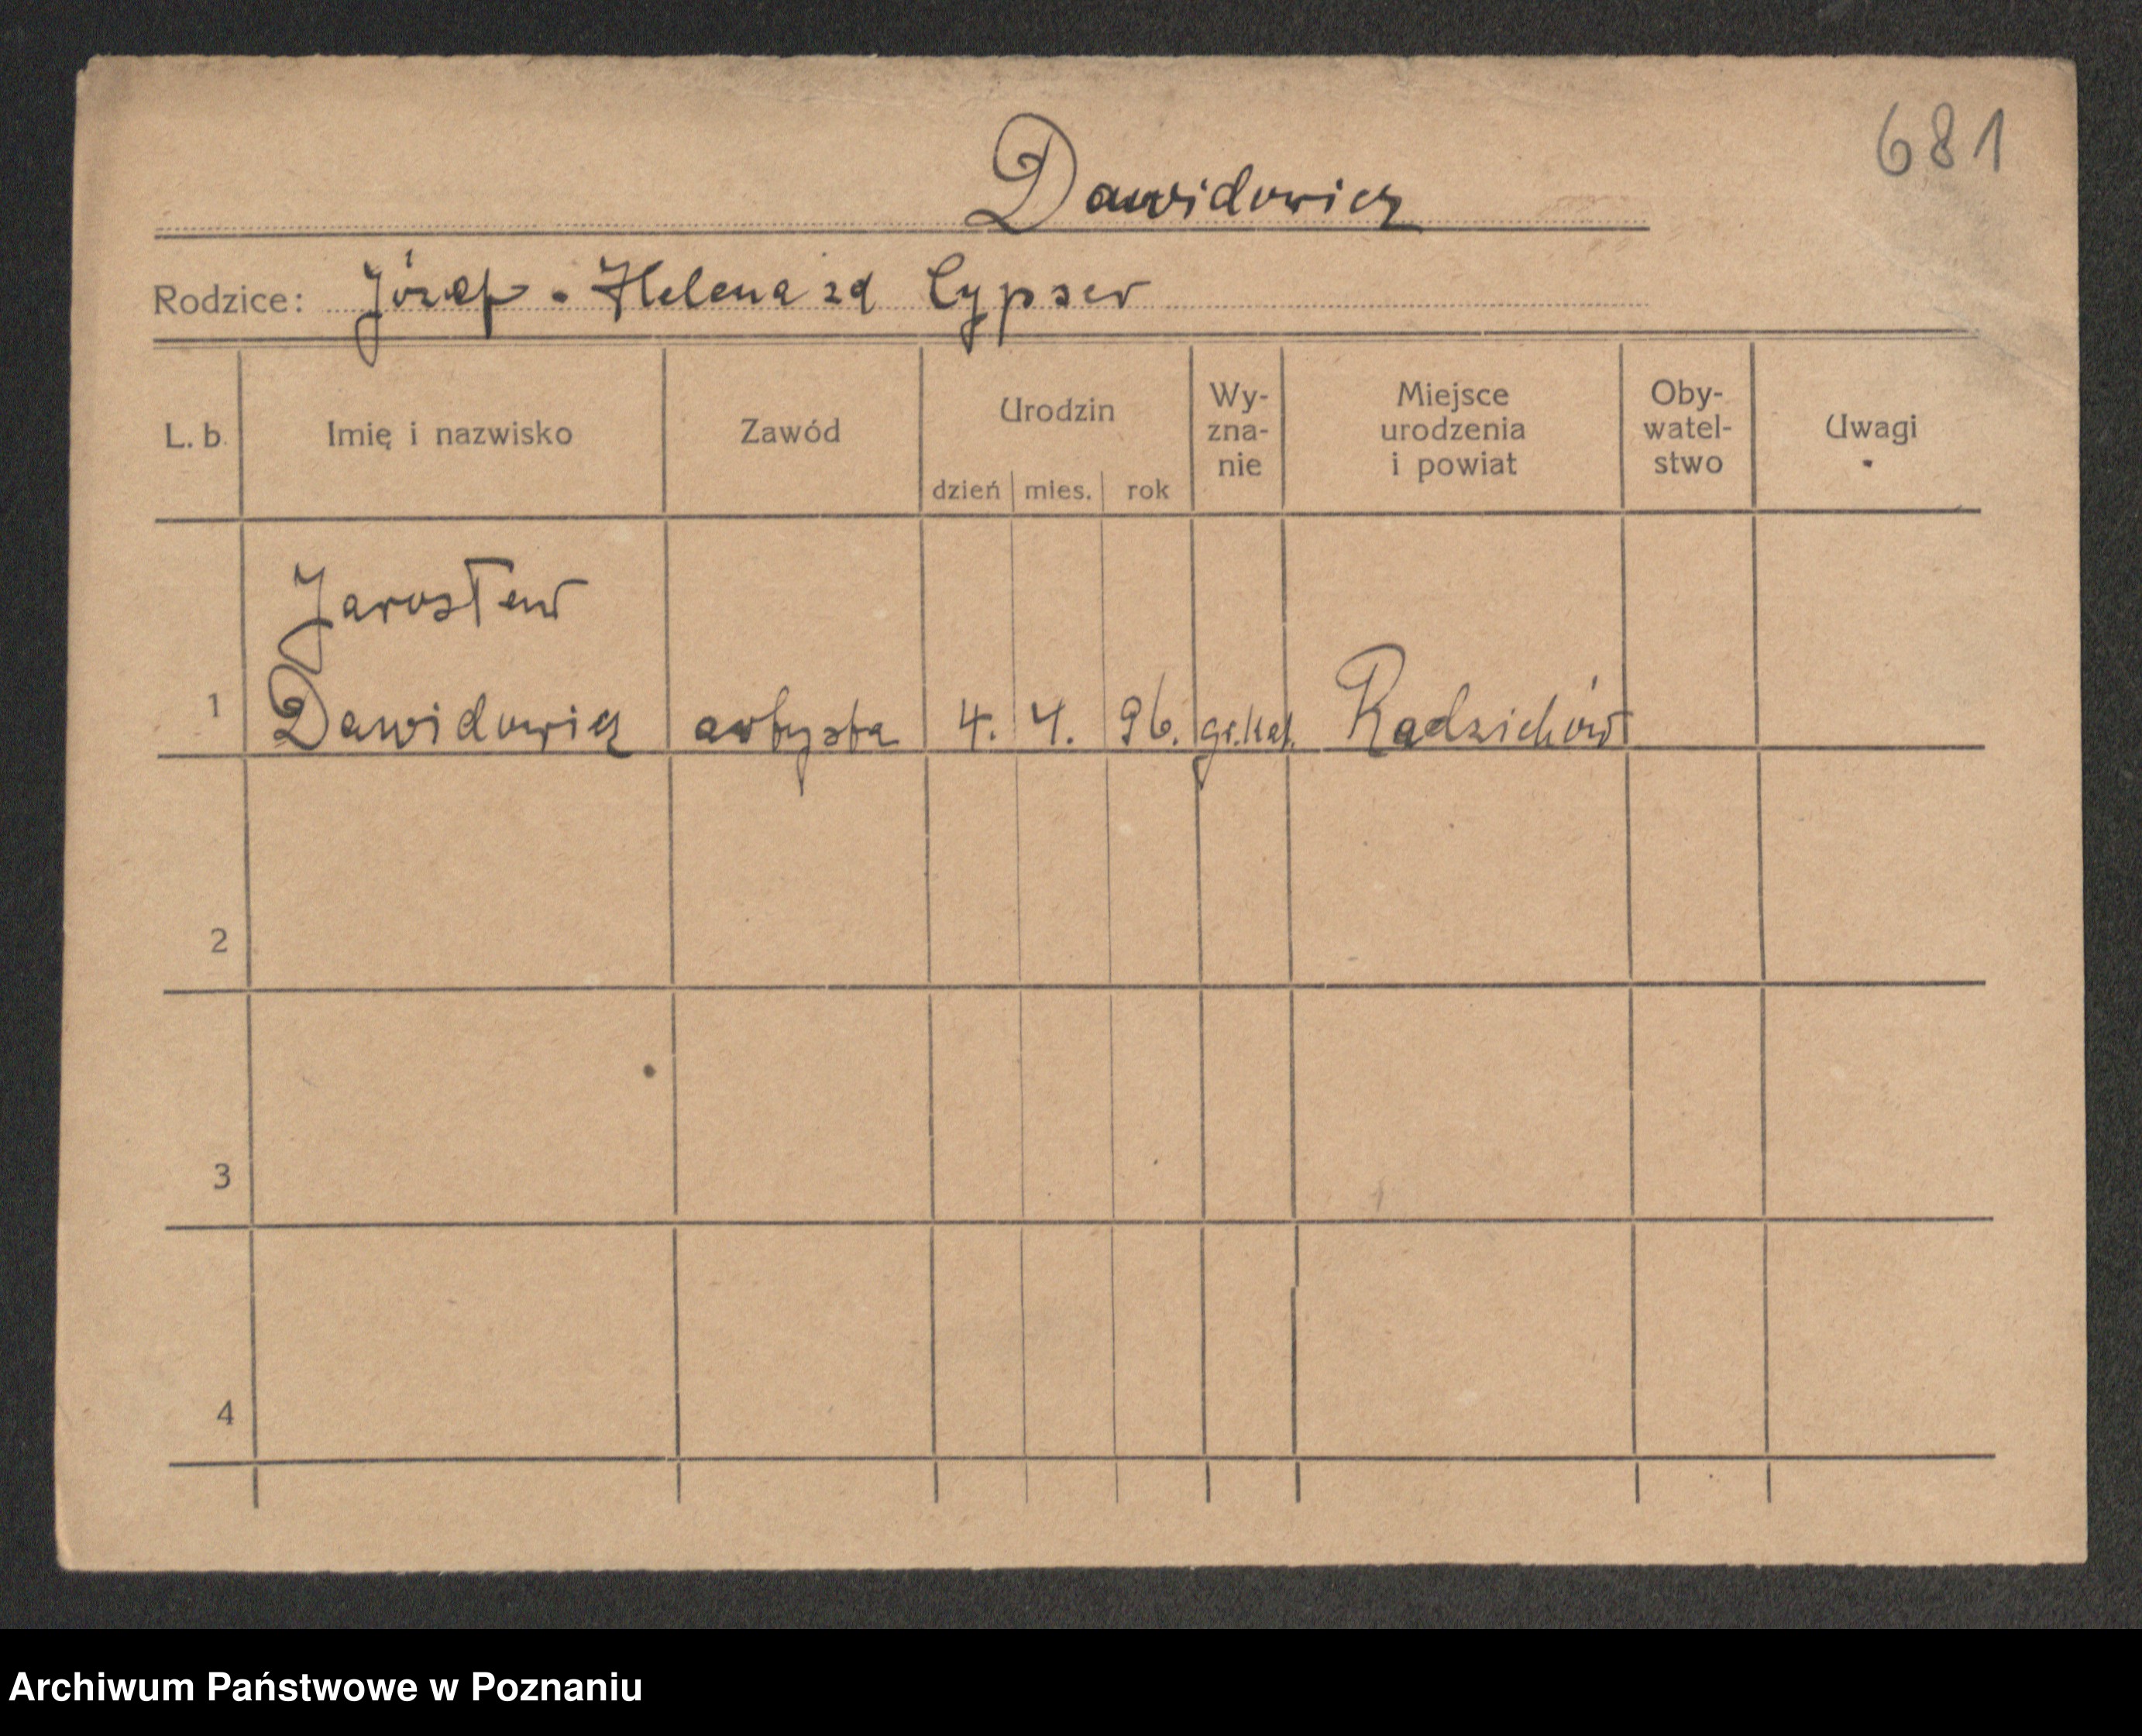 681
Dawidowicz
Rodzice: Józef - Helena zd Cypser
L. b. Imię i nazwisko Zawód Urodzin dzień mies. rok Wy-zna-nie Miejsce urodzenia i powiat Oby-watel-stwo Uwagi
Jarosław
1 Dawidowicz artysta 4. 4. 96. gr.kat. Radziechów
2
3
4
Archiwum Państwowe w Poznaniu